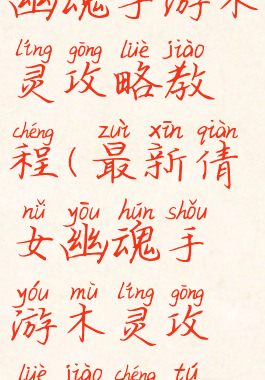 幽魂手游木
líng gōng lüè jiào
灵攻略教
chéng zuì xīn qiàn
程(最新倩
nǚ yōu hún shǒu
女幽魂手
yóu mù líng gōng
游木灵攻
lüè jiào chéng tú